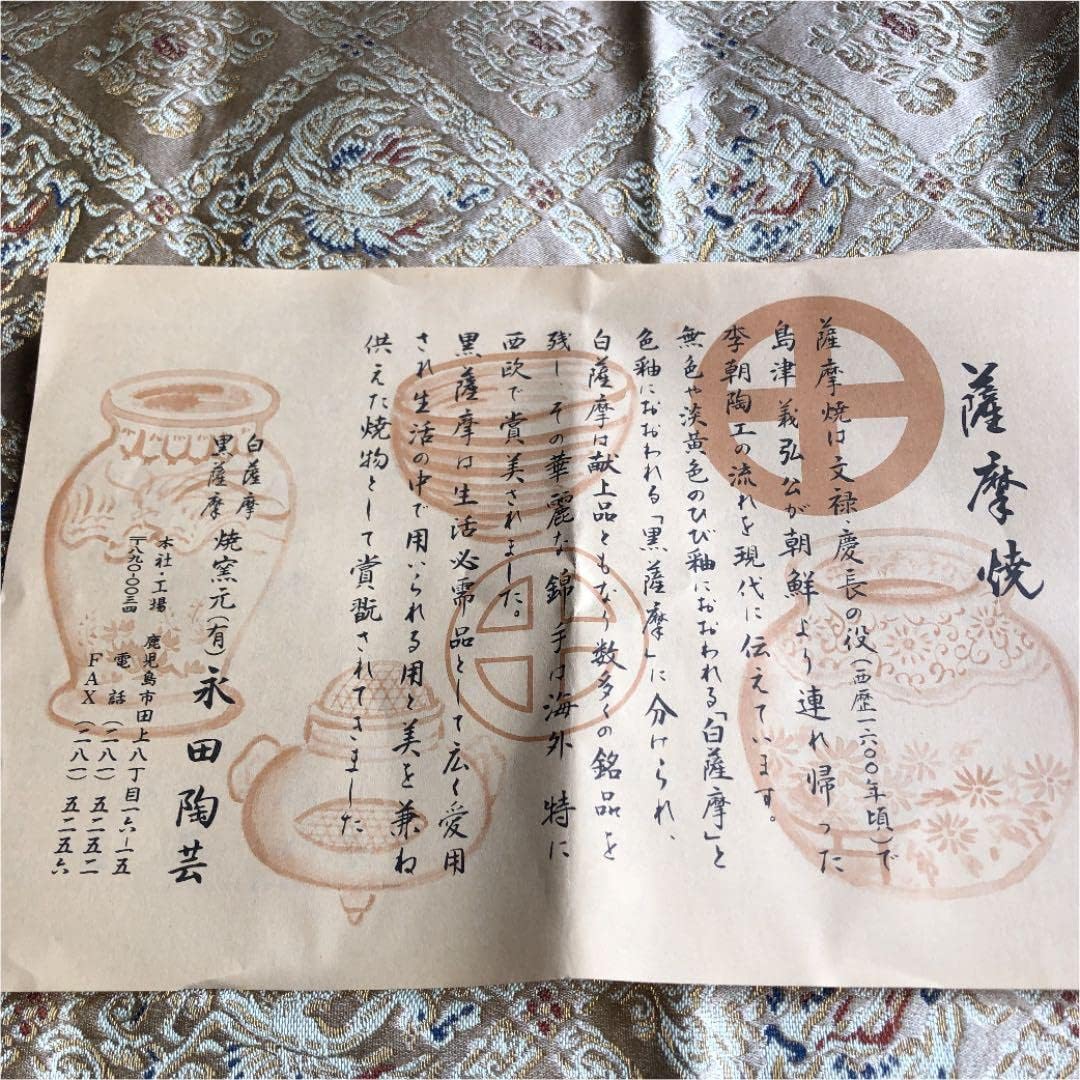 薩摩焼
薩摩焼は文禄・慶長の役(西歴一六〇〇年頃)で
島津義弘公が朝鮮より連れ帰った
李朝陶工の流れを現代に伝えています。
無色や淡黄色のひび釉におおわれる「白薩摩」と
色釉におおわれる「黒薩摩」に分けられ、
白薩摩は献上品ともなり数多くの銘品を
残し、その華麗な錦手は海外 特に
西欧で賞美されました。
黒薩摩は生活必需品として広く愛用
され生活の中で用いられる用と美を兼ね
供えた焼物として賞翫されてきました
白薩摩
黒薩摩 焼窯元(有)永田陶芸
本社・工場 鹿児島市田上八丁目一六―五
〒八九〇―〇〇三四 電話(二八一)五二五二
FAX(二八一)五二五六